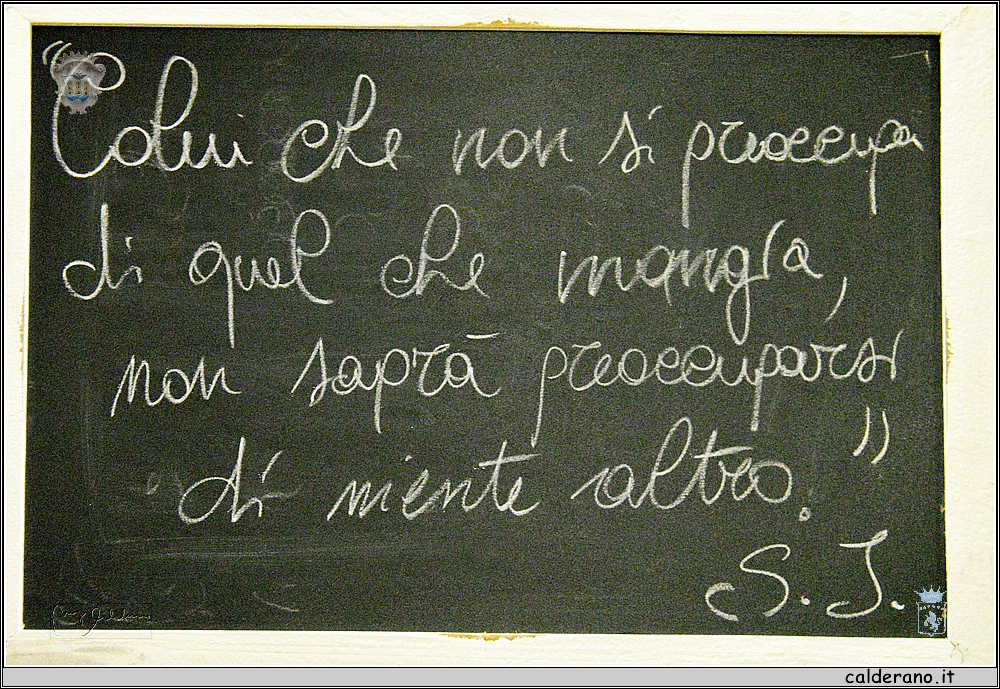 "Colui che non si preoccupa
di quel che mangia,
non saprà preoccuparsi
di niente altro."
S. J.
calderano.it